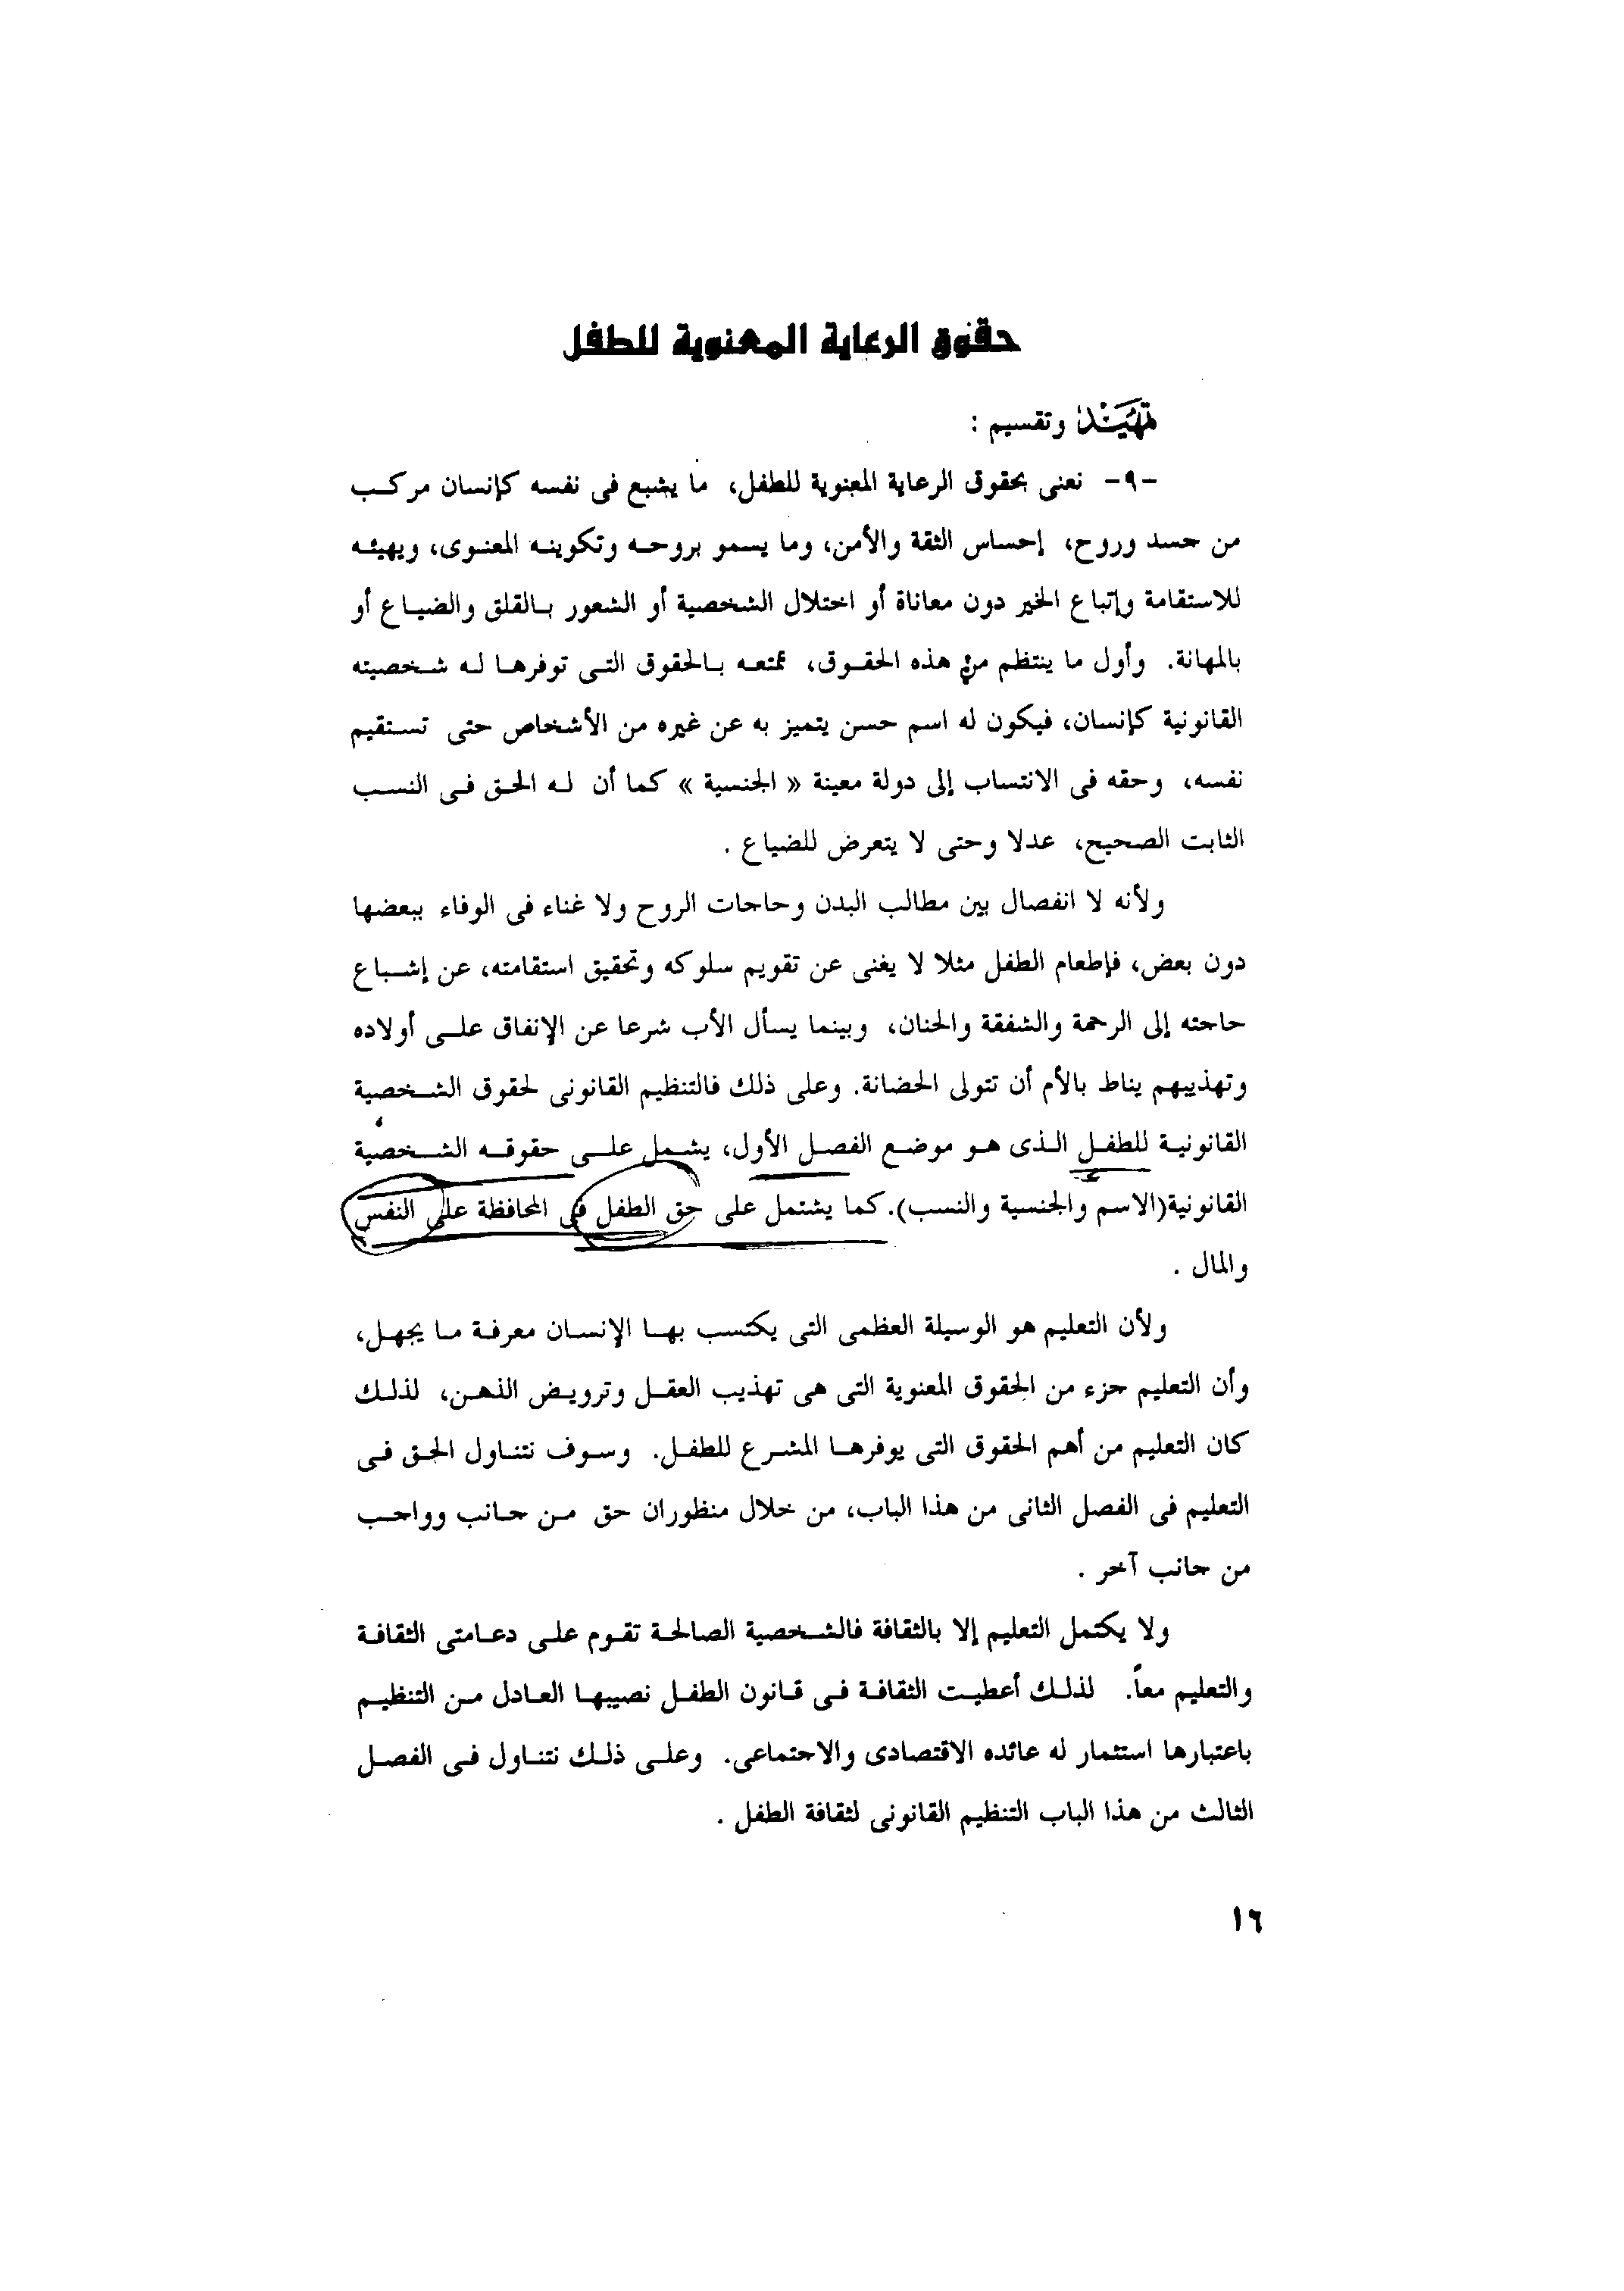 حقوق الرعاية المعنوية للطفل
تمهيد وتقسيم :
-٩- نعنى بحقوق الرعاية المعنوية للطفل، ما يشبع فى نفسه كإنسان مركب
من جسد وروح، إحساس الثقة والأمن، وما يسمو بروحه وتكوينه المعنوى، ويهيئه
للاستقامة وإتباع الخير دون معاناة أو اختلال الشخصية أو الشعور بالقلق والضياع أو
بالمهانة. وأول ما ينتظم من هذه الحقوق، تمتعه بالحقوق التى توفرها له شخصيته
القانونية كإنسان، فيكون له اسم حسن يتميز به عن غيره من الأشخاص حتى تستقيم
نفسه، وحقه فى الانتساب إلى دولة معينة « الجنسية » كما أن له الحق فى النسب
الثابت الصحيح، عدلا وحتى لا يتعرض للضياع .
ولأنه لا انفصال بين مطالب البدن وحاجات الروح ولا غناء فى الوفاء ببعضها
دون بعض، فإطعام الطفل مثلا لا يغنى عن تقويم سلوكه وتحقيق استقامته، عن إشباع
حاجته إلى الرحمة والشفقة والحنان، وبينما يسأل الأب شرعا عن الإنفاق على أولاده
وتهذيبهم يناط بالأم أن تتولى الحضانة. وعلى ذلك فالتنظيم القانونى لحقوق الشخصية
القانونية للطفل الذى هو موضع الفصل الأول، يشمل على حقوقه الشخصية
القانونية(الاسم والجنسية والنسب). كما يشتمل على حق الطفل فى المحافظة على النفس
والمال .
ولأن التعليم هو الوسيلة العظمى التى يكتسب بها الإنسان معرفة ما يجهل،
وأن التعليم جزء من الحقوق المعنوية التى هى تهذيب العقل وترويض الذهن، لذلك
كان التعليم من أهم الحقوق التى يوفرها المشرع للطفل. وسوف نتناول الحق فى
التعليم فى الفصل الثانى من هذا الباب، من خلال منظوران حق من جانب وواجب
من جانب آخر .
ولا يكتمل التعليم إلا بالثقافة فالشخصية الصالحة تقوم على دعامتى الثقافة
والتعليم معاً. لذلك أعطيت الثقافة فى قانون الطفل نصيبها العادل من التنظيم
باعتبارها استثمار له عائده الاقتصادى والاجتماعى. وعلى ذلك نتناول فى الفصل
الثالث من هذا الباب التنظيم القانونى لثقافة الطفل .
١٦